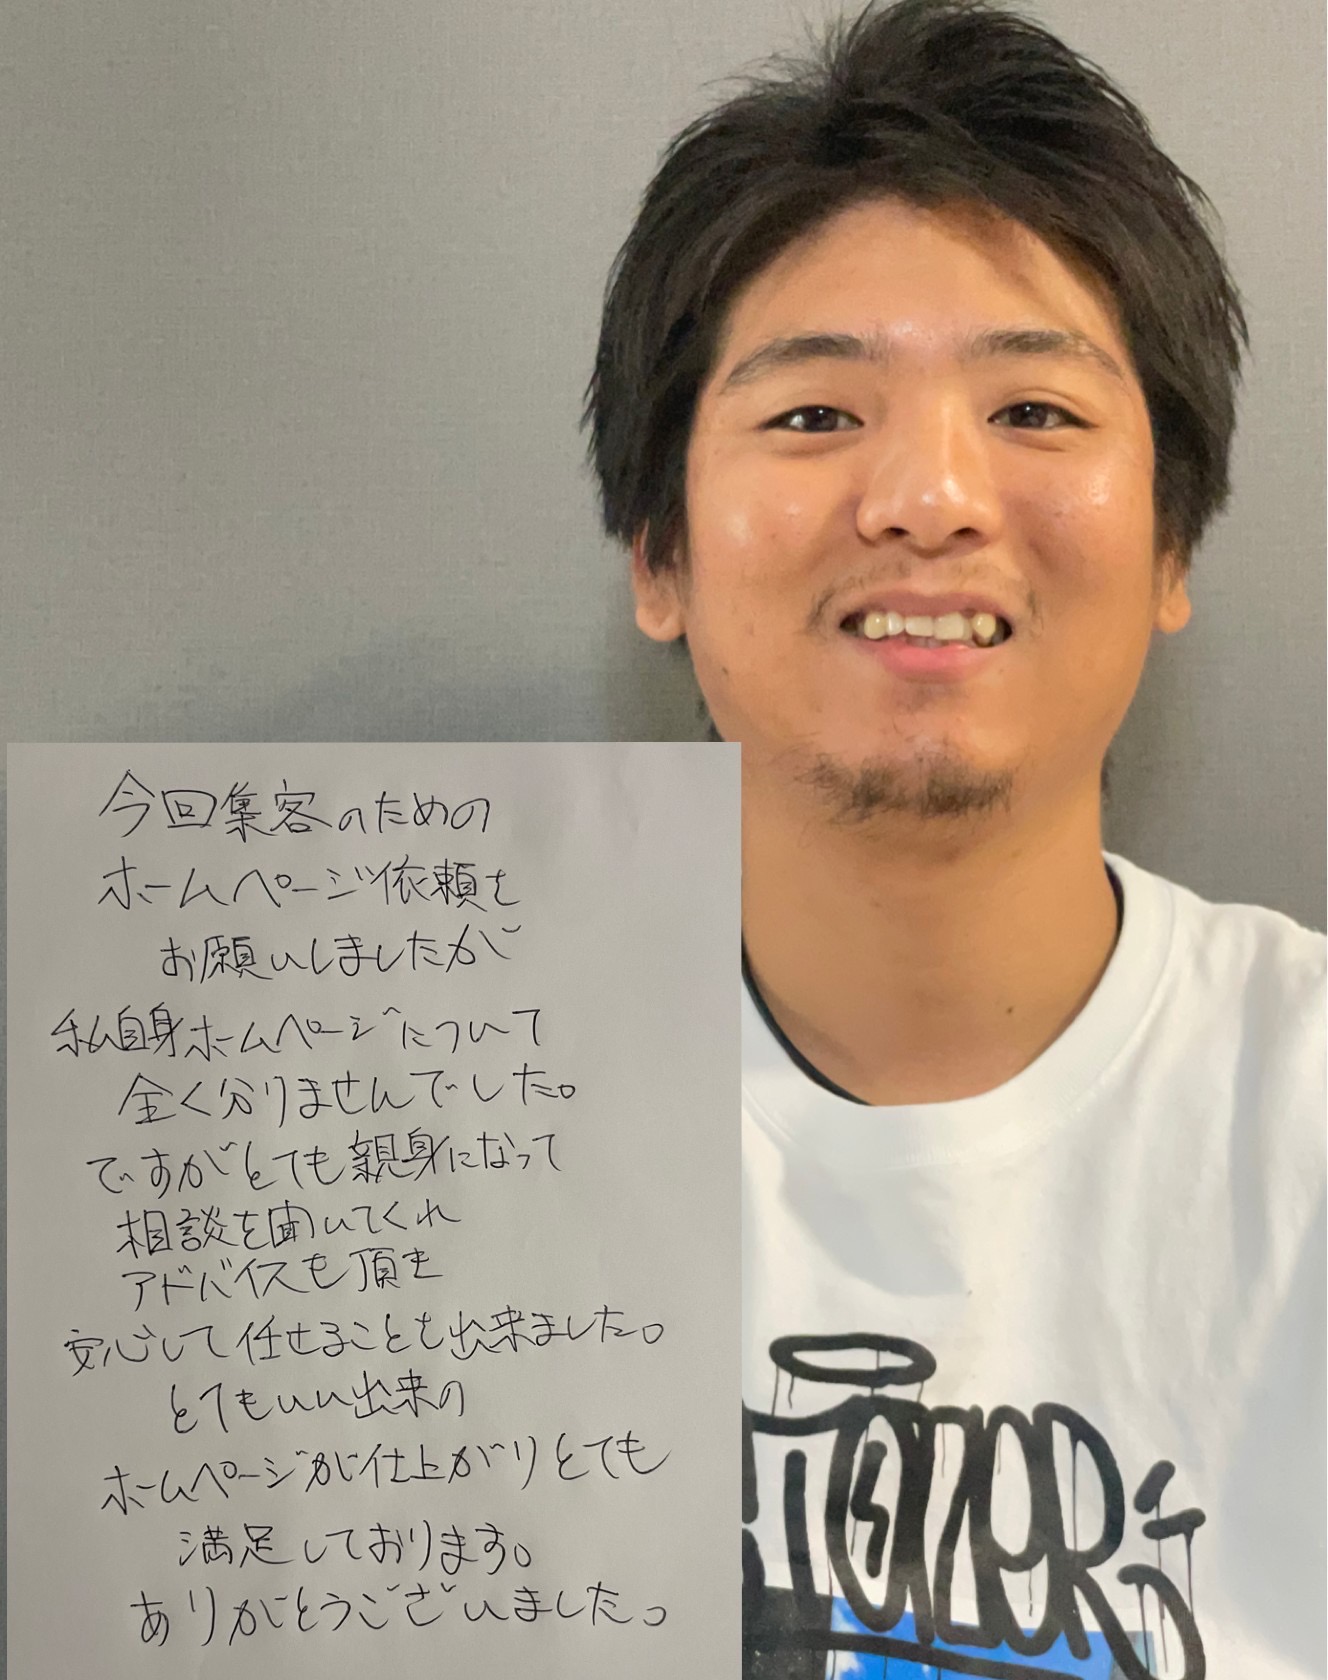 今回集客のための
ホームページ依頼を
お願いしましたが
私自身ホームページについて
全く分りませんでした。
ですがとても親身になって
相談を聞いてくれ
アドバイスも頂き
安心して任せることも出来ました。
とてもいい出来の
ホームページが仕上がりとても
満足しております。
ありがとうございました。